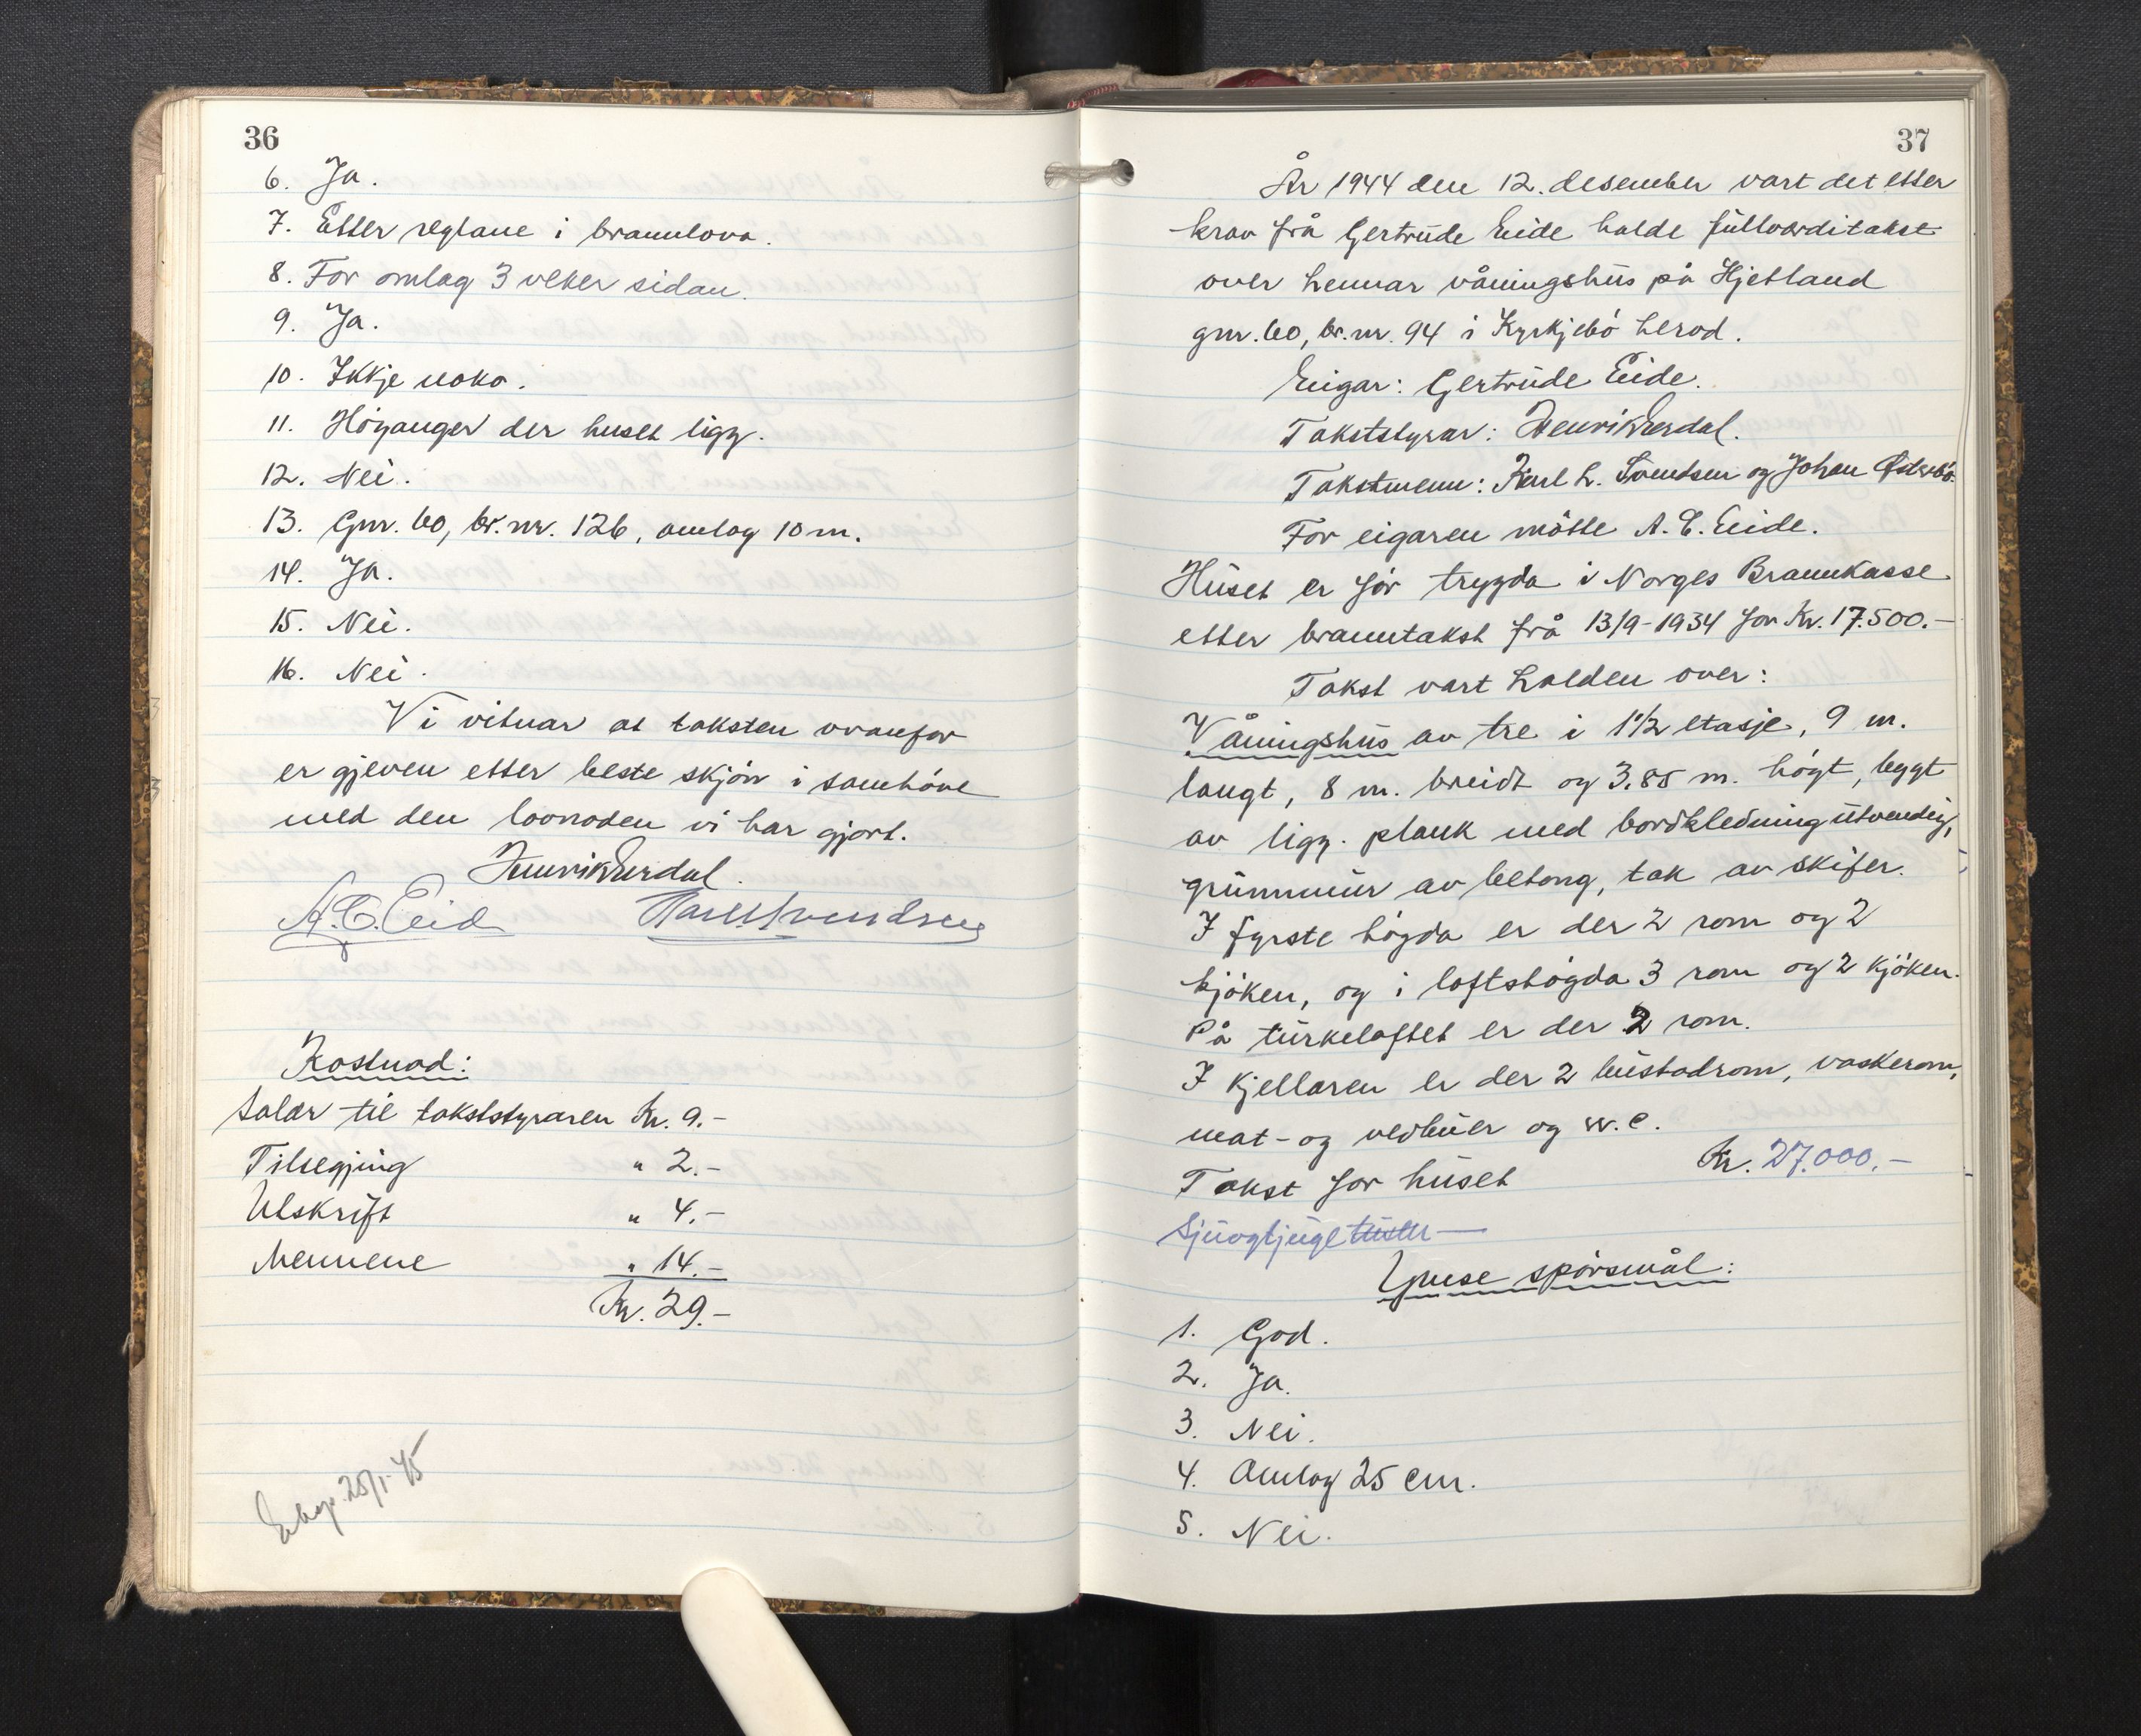 36
6. Ja.
7. Etter reglane i brannlova.
8. For omlag 3 veker sidan.
9. Ja.
10. Ikkje noko.
11. Höyanger der huset ligg.
12. Nei.
13. Gnr. 60, br.nr. 126, omlag 10 m.
14. Ja.
15. Nei.
16. Nei.
Vi vitnar at taksten ovanfor
er gjeven etter beste skjön i samhöve
med den lovnaden vi har gjort.
Henrik Erdal.
A. C. Eide Karl L Svendsen
Kostnad:
Salær til takststyraren Kr. 9.-
Tilsegjing " 2.-
Utskrift " 4.-
Mennene " 14.-
Kr. 29.-
25/1-45
37
År 1944 den 12. desember vart det etter
krav frå Gertrude Eide halde fullverditakst
over hennar våningshus på Hjetland
gnr. 60, br.nr. 94 i Kyrkjebö herad.
Eigar: Gertrude Eide.
Takststyrar: Henrik Erdal.
Takstmenn: Karl L. Svendsen og Johan Österbö.
For eigaren mötte A. C. Eide.
Huset er för trygda i Norges Brannkasse
etter branntakst frå 13/9-1934 for Kr. 17.500.-
Takst vart halden over:
Våningshus av tre i 1 1/2 etasje, 9 m.
langt, 8 m. breidt og 3.85 m. högt, bygt
av ligg. plank med bordkledning utvendig,
grunnmur av betong, tak av skifer.
I fyrste högda er der 2 rom og 2
kjöken, og i loftshögda 3 rom og 2 kjöken.
På turkeloftet er der 2 rom.
I kjellaren er der 2 bustadrom, vaskerom,
mat- og vedbuer og w.c.
Takst for huset Kr. 27.000.-
Sjuogtjuge tusen
Ymse spörsmål:
1. God.
2. Ja.
3. Nei.
4. Omlag 25 cm.
5. Nei.